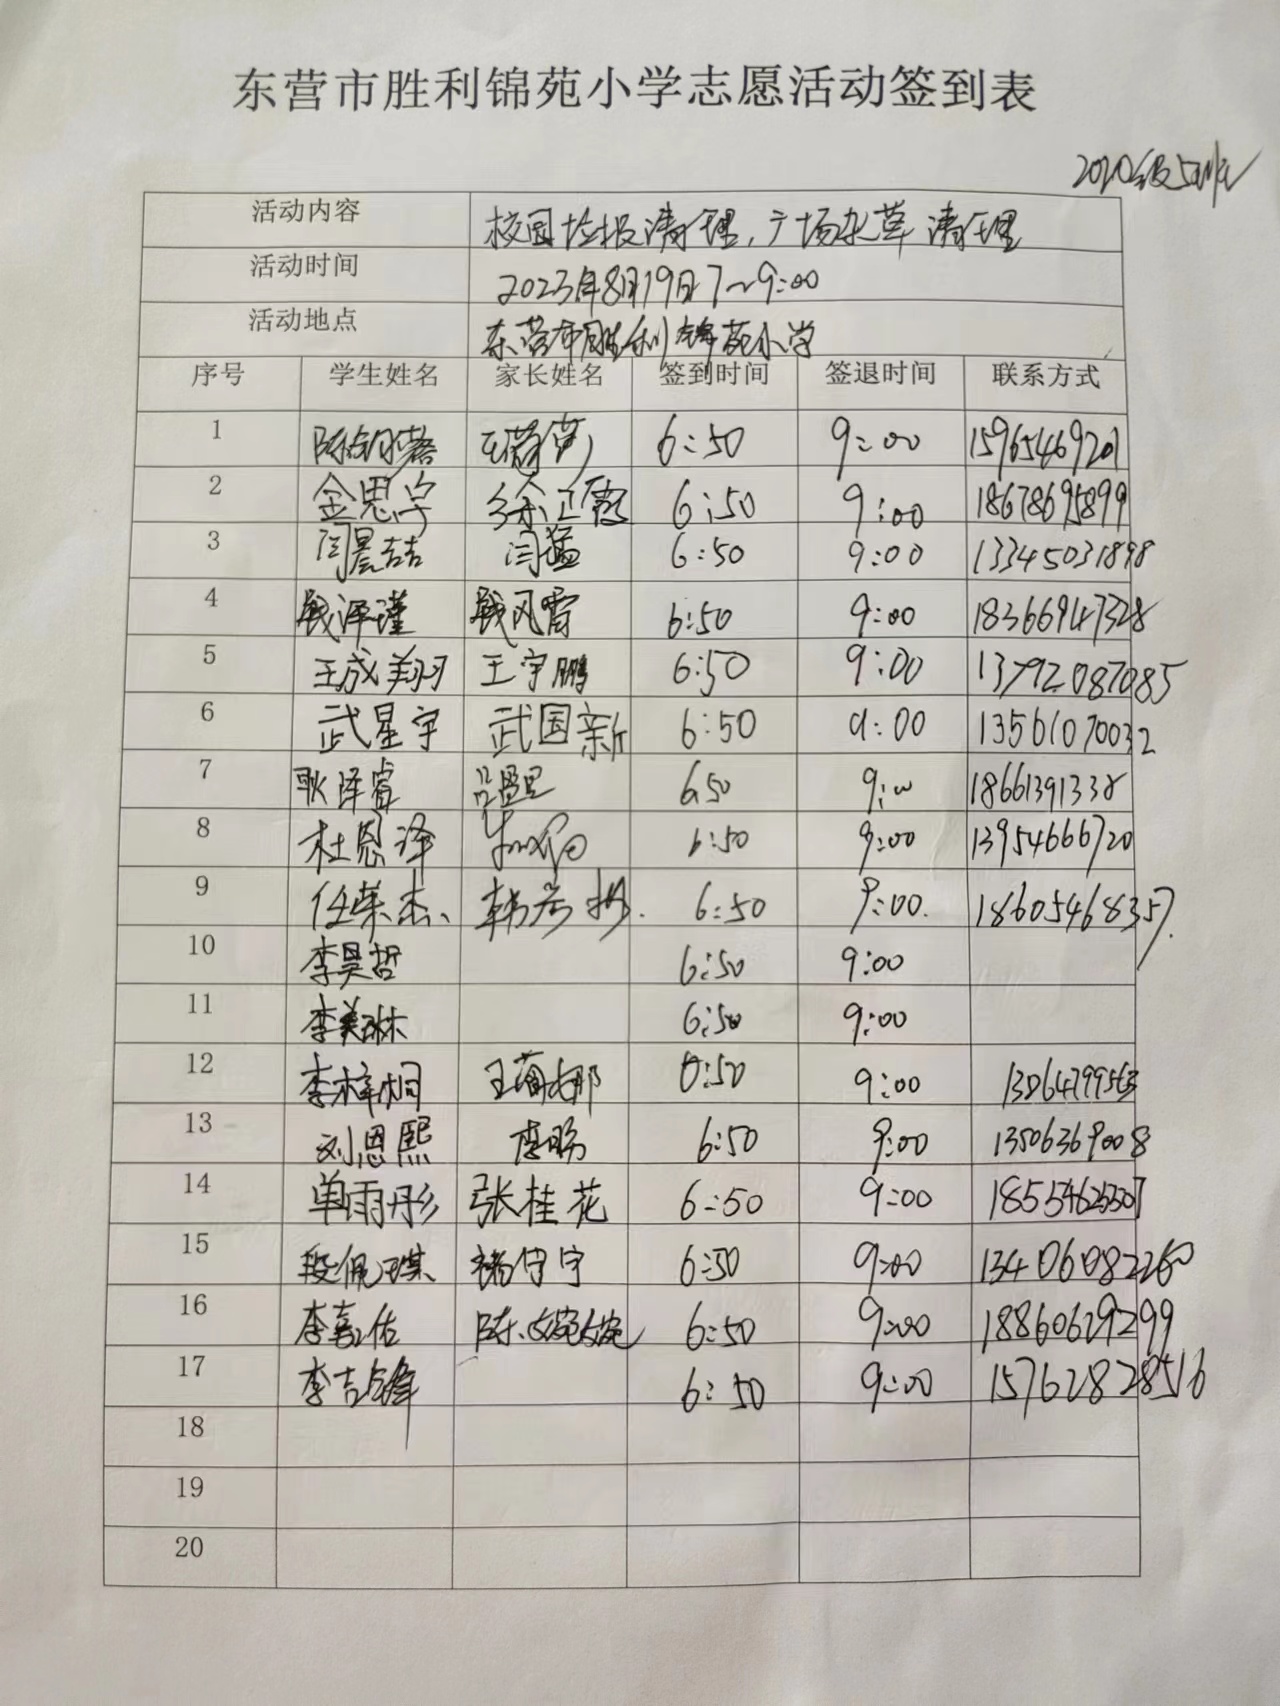 东营市胜利锦苑小学志愿活动签到表
2020级5班
活动内容 校园垃圾清理,广场杂草清理
活动时间 2023年8月19日7~9:00
活动地点 东营市胜利锦苑小学
序号 学生姓名 家长姓名 签到时间 签退时间 联系方式
1 6:50 9:00 15965469201
2 金思宇 徐卫霞 6:50 9:00 18678695899
3 闫晨喆 闫猛 6:50 9:00 13345031898
4 钱泽瑾 钱风雷 6:50 9:00 18366947328
5 王成翔 王宇鹏 6:50 9:00 13792087085
6 武星宇 武国新 6:50 9:00 13561070032
7 耿泽睿 6:50 9:00 18661391338
8 杜恩泽 6:50 9:00 13954666720
9 任荣杰 6:50 9:00. 18605468357.
10 李昊哲 6:50 9:00
11 李美琳 6:50 9:00
12 李梓桐 6:50 9:00
13 刘恩熙 6:50 9:00 13506369008
14 单雨彤 张桂花 6:50 9:00
15 段佩琪 褚守宇 6:50 9:00 13406082260
16 李嘉佑 陈婉婉 6:50 9:00 18860629299
17 李吉锋 6:50 9:00 15762828516
18
19
20